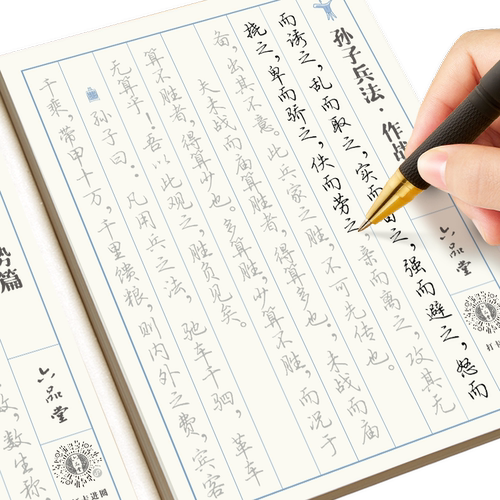 孙子兵法·作战
而诱之，乱而取之，实而备之，强而避之，怒而
挠之，卑而骄之，佚而劳之，亲而离之，攻其无
备，出其不意。此兵家之胜，不可先传也。
夫未战而庙算胜者，得算多也；未战而庙
算不胜者，得算少也。多算胜，少算不胜，而况于
无算乎！吾以此观之，胜负见矣。
孙子曰：凡用兵之法，驰车千驷，革车
千乘，带甲十万，千里馈粮，则内外之费，宾客
六品堂
打卡
势篇
六品堂
打卡进圈
，数生称